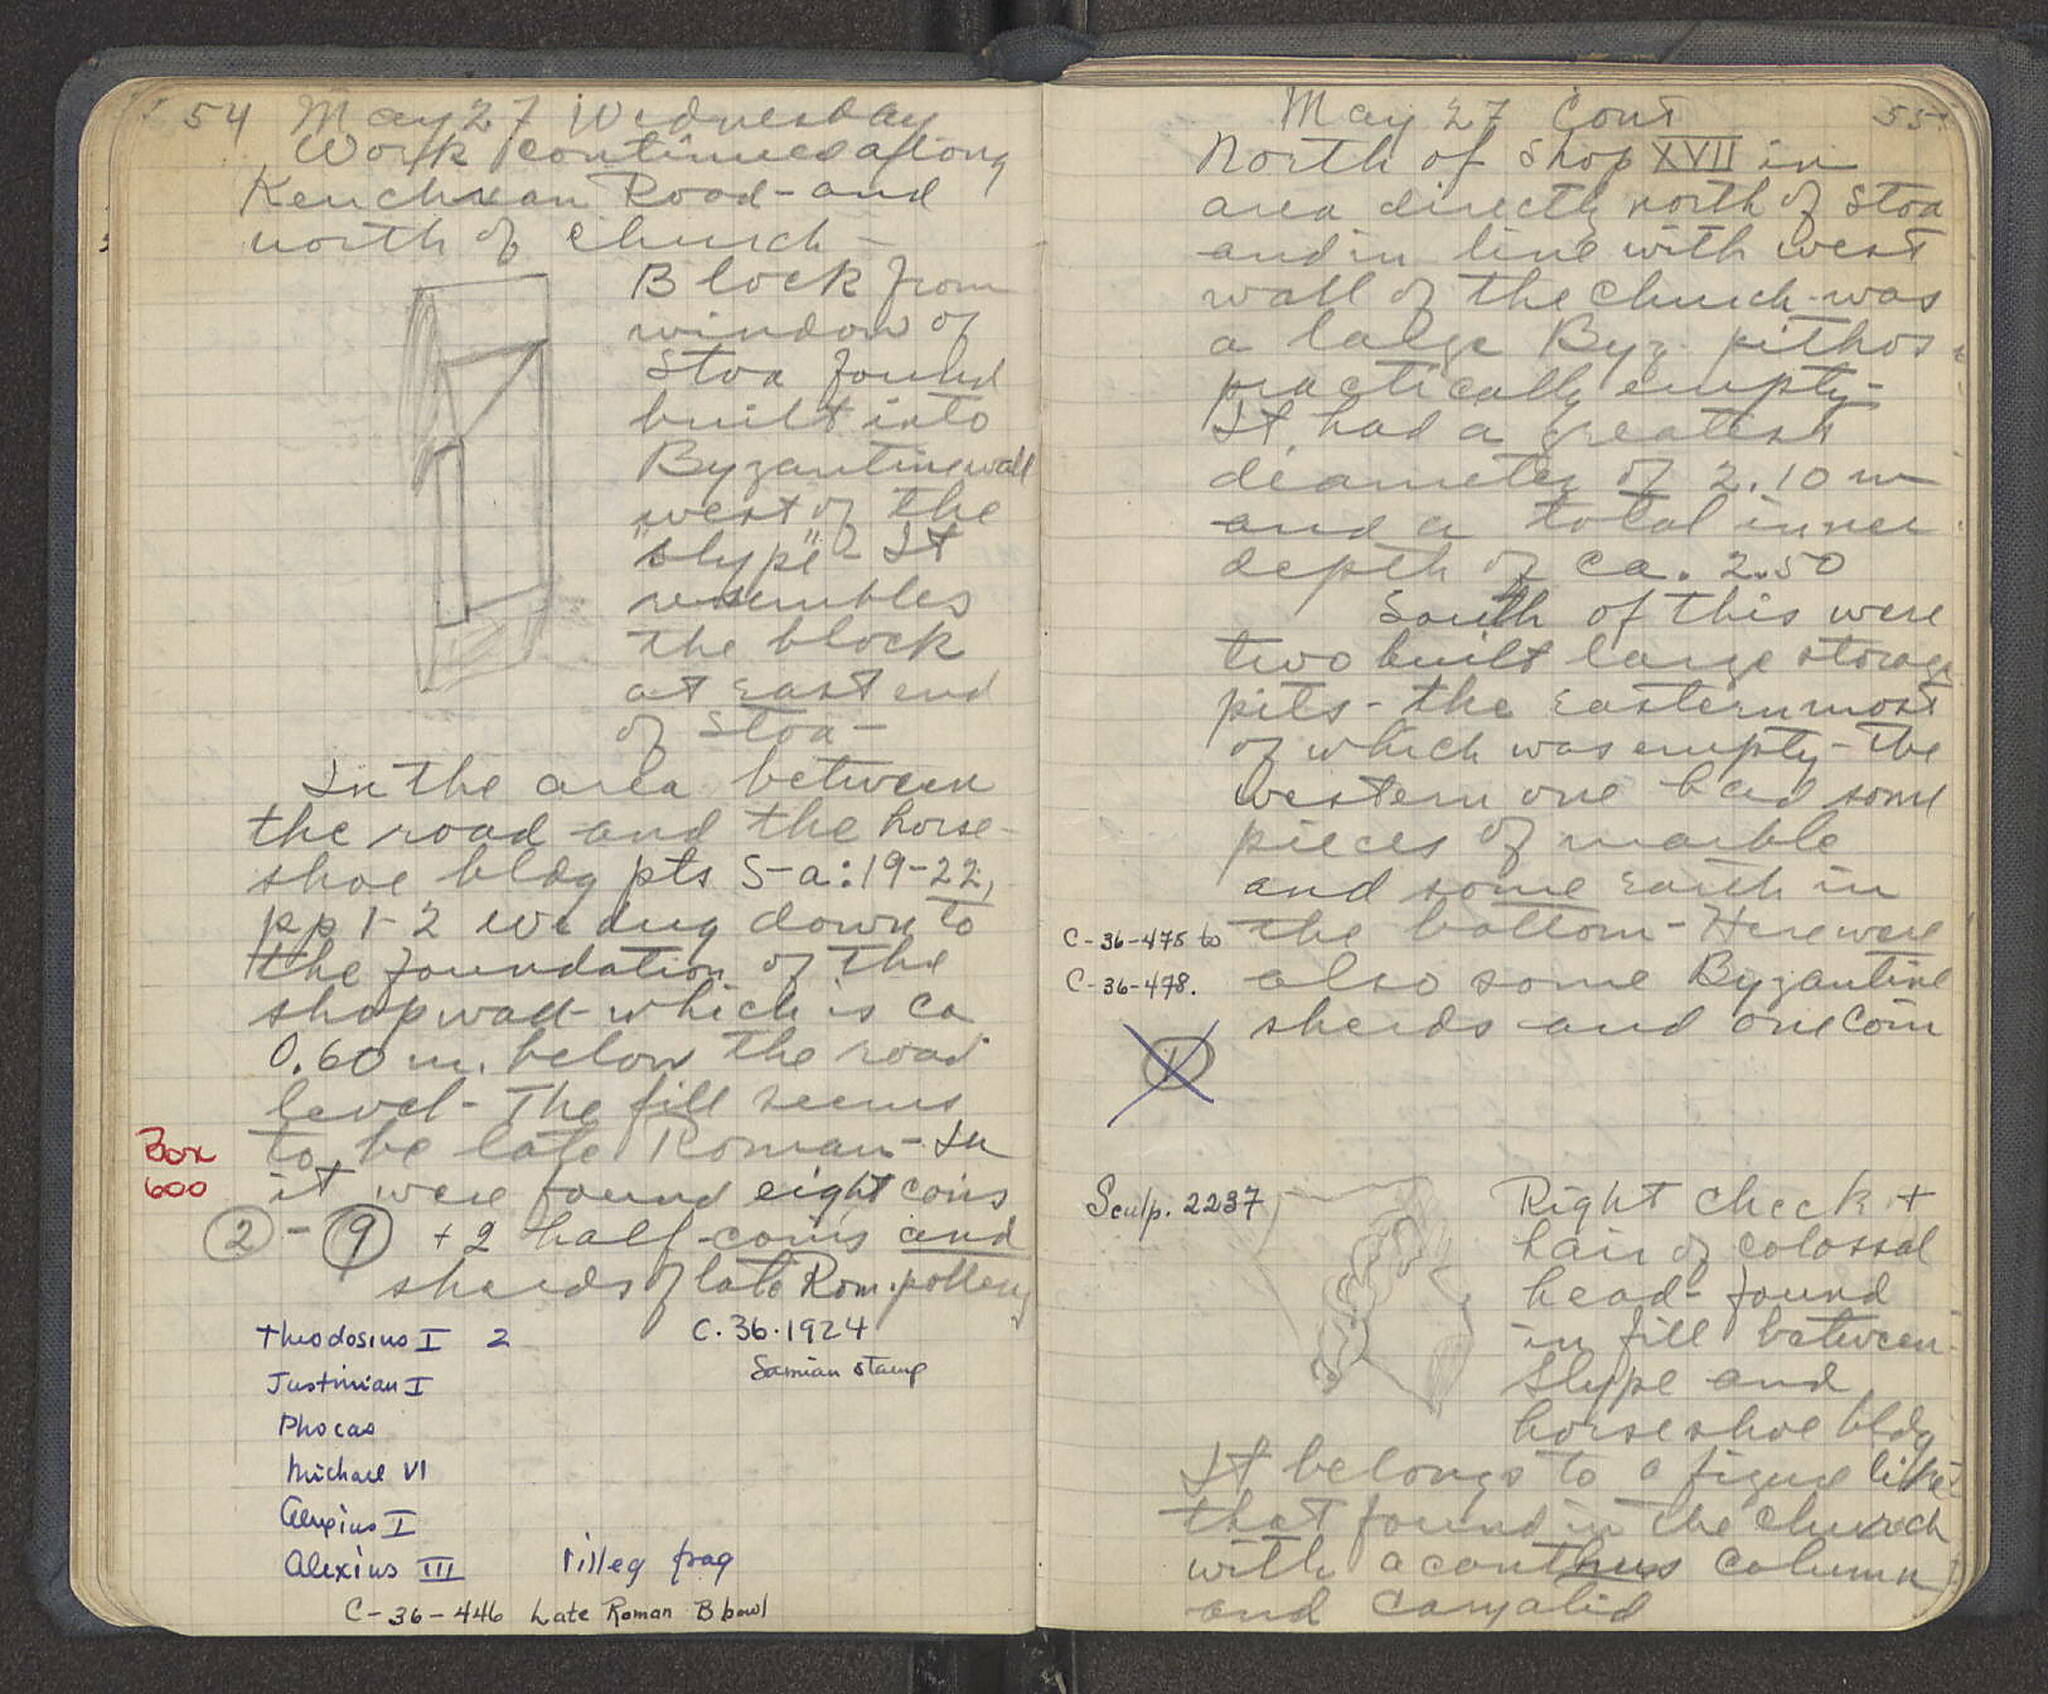 54 May 27 Wednesday
Work continued along
Kenchrean Road - and
north of church -
Block from
window of
Stoa found
built into
Byzantine wall
west of the
"slype" - It
resembles
the block
at East end
of Stoa -
In the area between
the road and the horse-
shoe bldg pts S-a:19-22,
pp 1-2 we dug down to
the foundation of the
shop wall - which is ca
0.60 m. below the road
level - The fill seems
to be late Roman - In
Box
600
it were found eight coins
2 - 9 + 2 half-coins and
sherds of late Rom. pottery
Theodosius I 2
C.36.1924
Samian stamp
Justinian I
Phocas
Michael VI
I
Alexius III
1 illeg frag
C-36-446 Late Roman B bowl
May 27 Cont 55
North of shop XVII in
area directly north of Stoa
and in line with west
wall of the church - was
a large Byz. pithos
practically empty -
It had a greatest
diameter of 2.10 m
and a total inner
depth of ca. 2.50
South of this were
two built large storage
pits - the easternmost
of which was empty - the
western one had some
pieces of marble
and some earth in
C-36-475 to
the bottom - Here were
C-36-478.
also some Byzantine
sherds and one coin
1
Sculp. 2237
Right cheek +
hair of colossal
head - found
in fill between
Slype and
horseshoe bldg
It belongs to a figure like
that found in the church
with acanthus column
and caryatid